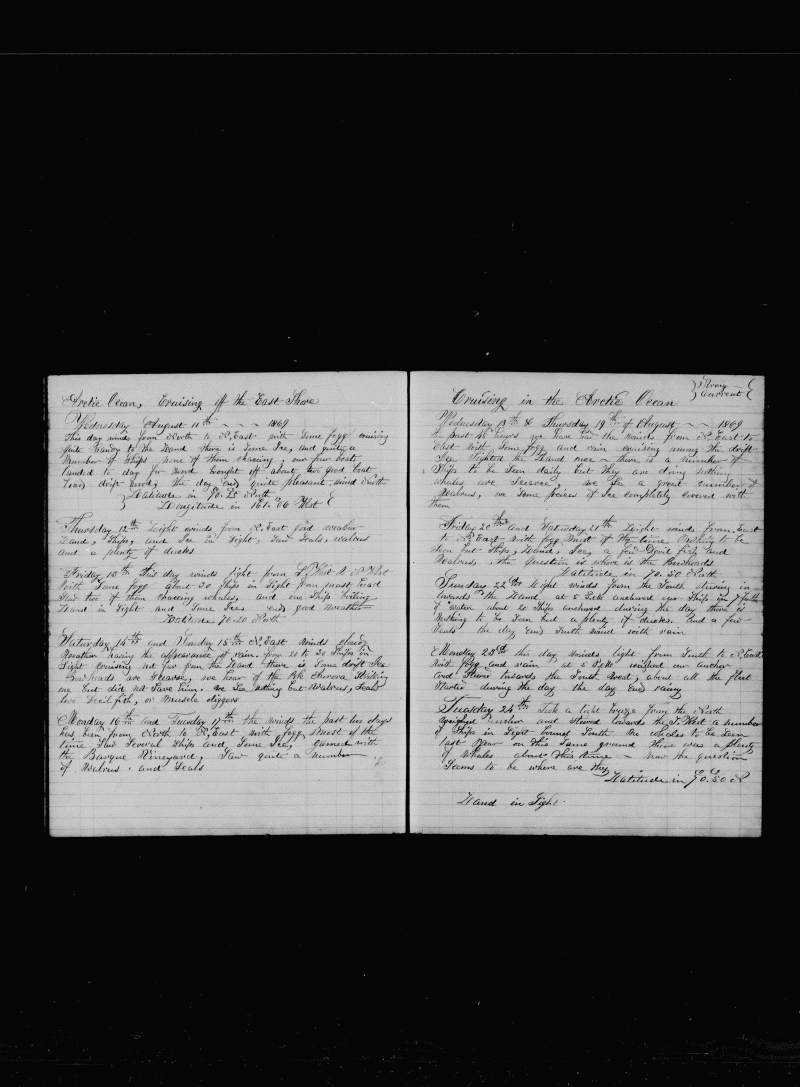 Arctic Ocean, Cruising off the East Shore
Wednesday August 11th ~ ~ ~ 1869
This day winds from North to N. East with some fogg cruising
quite handy to the Land there is some Ice, and quite a
Number of Ships none of them boiling, our four boats
landed to day for wood bought off about two good boat
loads drift wood, the day ends quite pleasant wind North
Latitude in 70.25 North
Longitude in 161.00 West
Thursday 12th Light winds from N. East good weather
Land, Ships, and Ice in Sight, Saw Seals, walrus
and a plenty of ducks
Friday 13th This day winds light from S. West & N. West
with some fogg about 30 Ships in Sight from mast head
Saw two of them chasing whales, and one Ship boiling
Land in Sight and some Ice, ends good weather
Latitude 70.20 North
Saturday 14th and Sunday 15th N. East winds cloudy
Weather having the appearance of rain. from 20 to 30 Ships in
Sight cruising not far from the Land there is some drift Ice
Bowheads are Scarse, we hear of the Bk Awrora Striking
one but did not save him. we see nothing but walrus, Seals
two Seil fish, or Muscle diggers
Monday 16th and Tuesday 17th the winds the past two days
has been from North to N. East with fogg most of the
time Saw Several Ships and Some Ice, gamed with
the Barque Vineyard, Saw quite a number
of Walrus and Seals
Strong
Current
Cruising in the Arctic Ocean
Wednesday 18th & Thursday 19th of August ~ ~ 1869
the past 48 hours we have had the winds from N. East to
East with some fogg and rain cruising among the drift
Ice Sighted the Land once ~ there is a number of
Ships to be Seen daily but they are doing nothing
whales are Scarce, we See a great number of
Walrus, on Some peices of Ice completely covered with
them
Friday 20th and Saturday 21st Light winds from East
to N. East with fogg most of the time Nothing to be
Seen but Ships, Land, Ice, a few Devil fish and
Walrus, the question is where is the Bowheads
Latitude in 70.50 North
Sunday 22nd Light winds from the South stering in
towards the Land, at 8 Oclk anchored our Ship in 7 fath
of water about 20 Ships anchored during the day there is
Nothing to be Seen but a plenty of ducks. And a few
Seals the day Ends South wind with rain
Monday 23rd this day winds light from South to N. East
with fogg and rain, at 5 Oclk weighed our anchor
and Stered towards the South West, about all the fleet
Started during the day the day Ends rainy
Tuesday 24th Took a light breeze from the North
weighed anchor and Stered towards the S. West a number
of Ships in Sight bound South No whales to be Seen
last Year on this Same ground there was a plenty
of whales about this time ~ now the question
Seems to be where are they
Latitude in 70.50 N
Land in Sight.